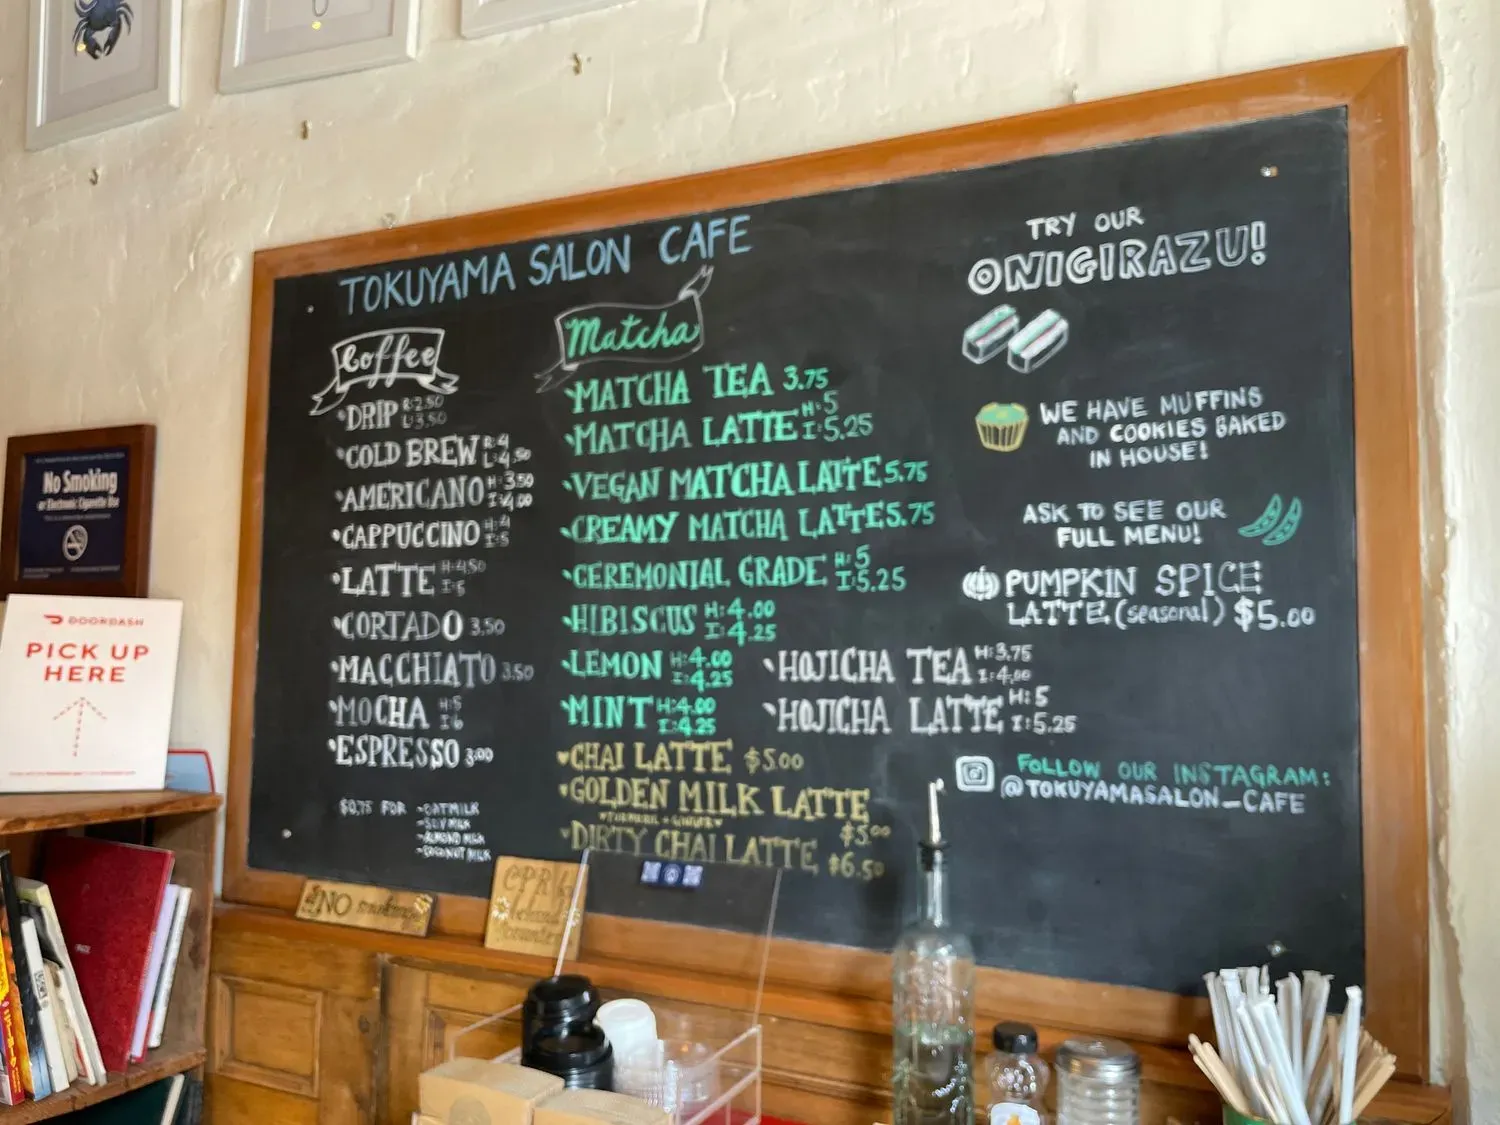 TOKUYAMA SALON CAFE
Coffee
DRIP R:2.50
L:3.50
COLD BREW R:4
L:4.50
AMERICANO H:3.50
I:4.00
CAPPUCCINO H:4
I:5
LATTE H:4.50
I:5
CORTADO 3.50
MACCHIATO 3.50
MOCHA H:5
I:6
ESPRESSO 3.00
$0.75 FOR -OATMILK
-SOYMILK
-ALMOND MILK
-COCONUT MILK
Matcha
MATCHA TEA 3.75
MATCHA LATTE H:5
I:5.25
VEGAN MATCHA LATTE 5.75
CREAMY MATCHA LATTE 5.75
CEREMONIAL GRADE H:5
I:5.25
HIBISCUS H:4.00
I:4.25
LEMON H:4.00
I:4.25
MINT H:4.00
I:4.25
HOJICHA TEA H:3.75
I:4.00
HOJICHA LATTE H:5
I:5.25
CHAI LATTE $5.00
GOLDEN MILK LATTE
TURMERIC + GINGER
$5.00
DIRTY CHAI LATTE $6.50
TRY OUR
ONIGIRAZU!
WE HAVE MUFFINS
AND COOKIES BAKED
IN HOUSE!
ASK TO SEE OUR
FULL MENU!
PUMPKIN SPICE
LATTE (seasonal) $5.00
FOLLOW OUR INSTAGRAM:
@TOKUYAMASALON_CAFE
No Smoking
or Electronic Cigarette Use
DOORDASH
PICK UP
HERE
NO smoking
CPR